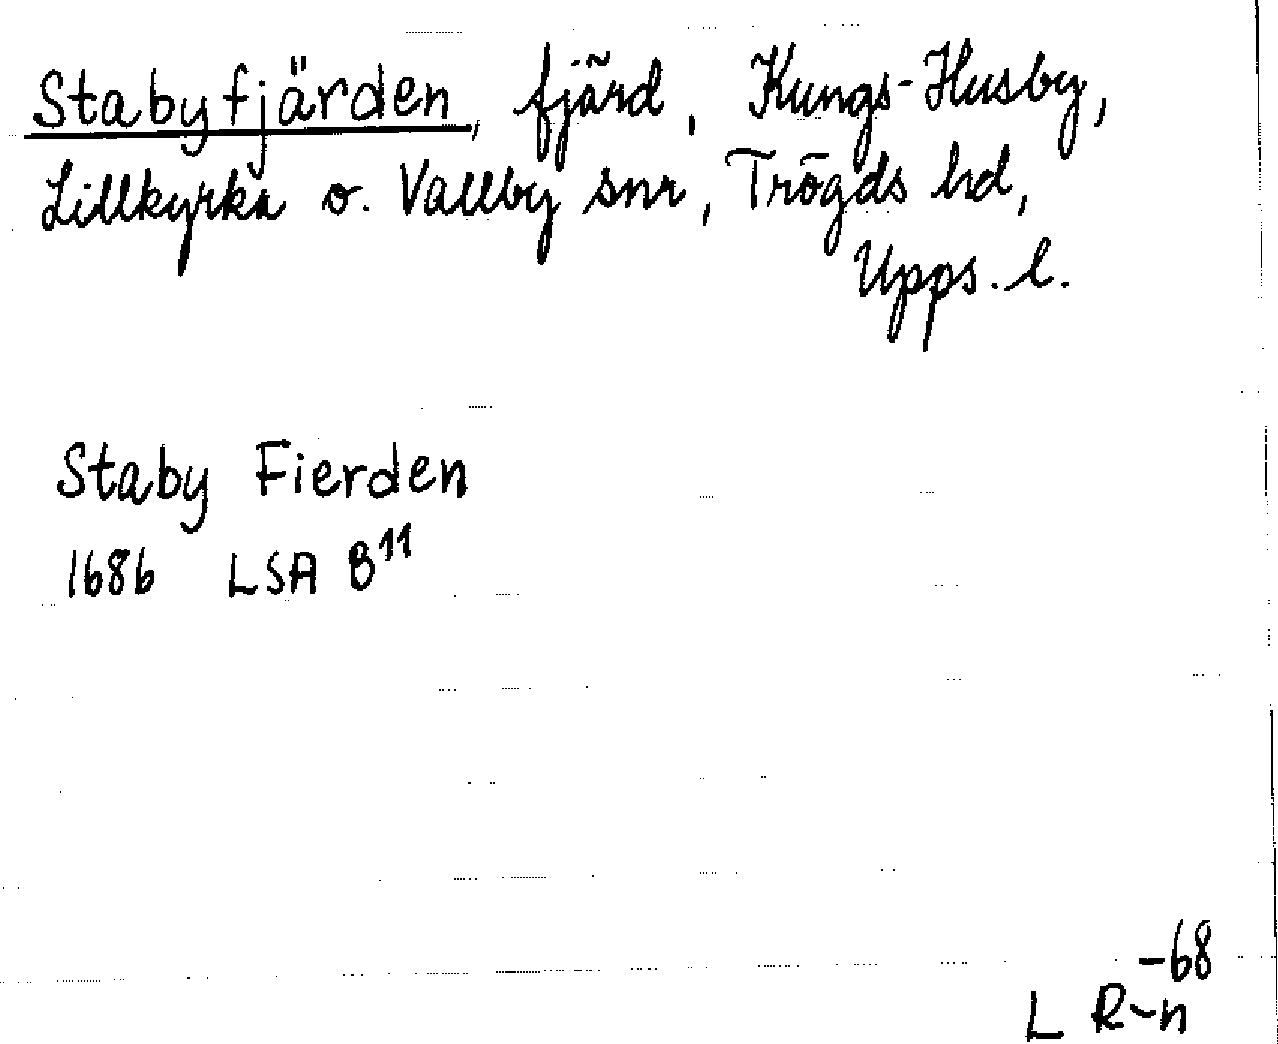 Stabyfjärden, fjärd, Kungs-Husby,
Lillkyrka o. Vallby snr, Trögds hd,
Upps. l.
Staby Fierden
1686 LSA B¹¹
-68
L R-n